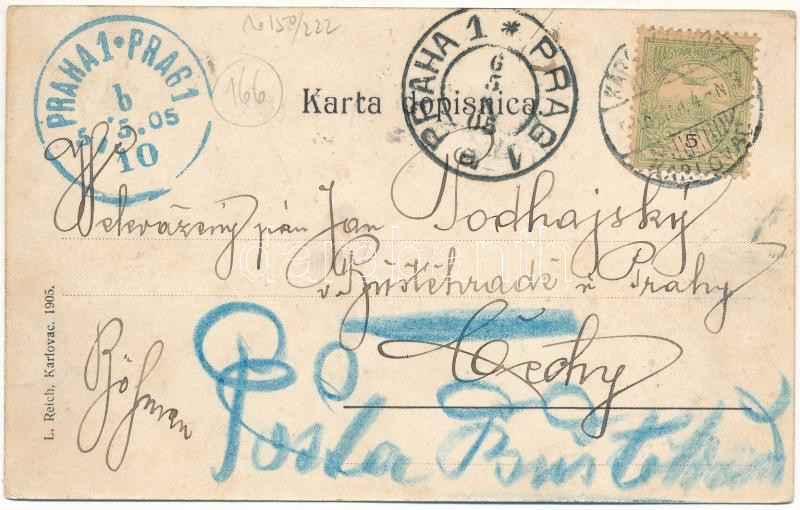 № 150/222
166
PRAHA 1 • PRAG 1
6
5.5.05
10
PRAHA 1 * PRAG 1
6
5
05
Karta dopisnica.
5
Velevážený pán Jan Podhajský
v Buštěhradě u Prahy
Čechy
Böhmen
Posta Buštěhrad
L. Reich, Karlovac. 1905.
darabanth